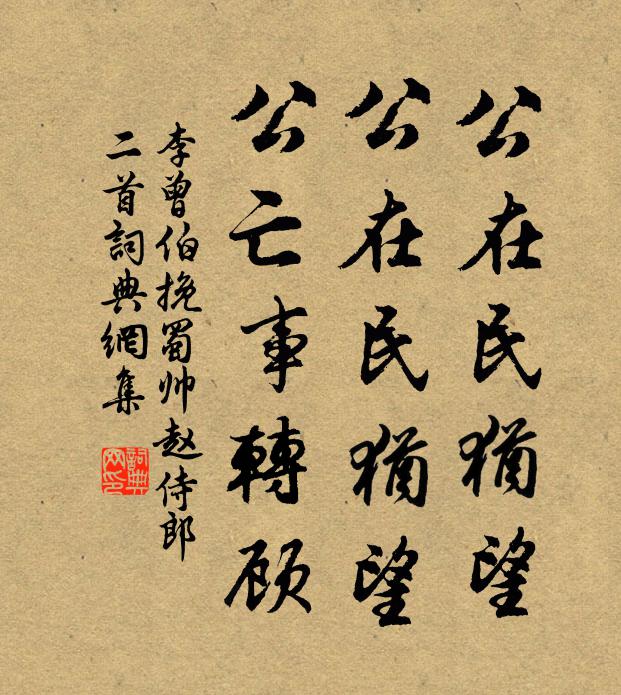 公在民犹望
公在民犹望
公亡事轉顾
李曾伯挽蜀帅赵侍郎
二首詞典網集
詞典
网印